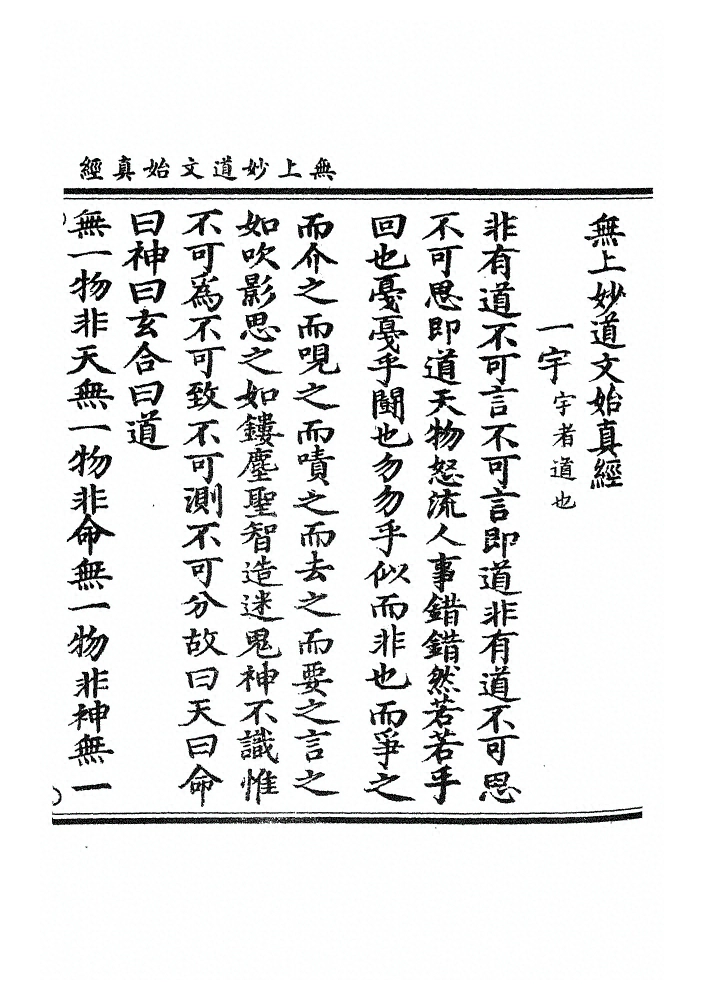 無上妙道文始真經
無上妙道文始真經
一宇 宇者道也
非有道不可言不可言即道非有道不可思
不可思即道天物怒流人事錯錯然若若乎
回也戞戞乎鬭也勿勿乎似而非也而爭之
而介之而哯之而嘖之而去之而要之言之
如吹影思之如鏤塵聖智造迷鬼神不識惟
不可爲不可致不可測不可分故曰天曰命
曰神曰玄合曰道
無一物非天無一物非命無一物非神無一